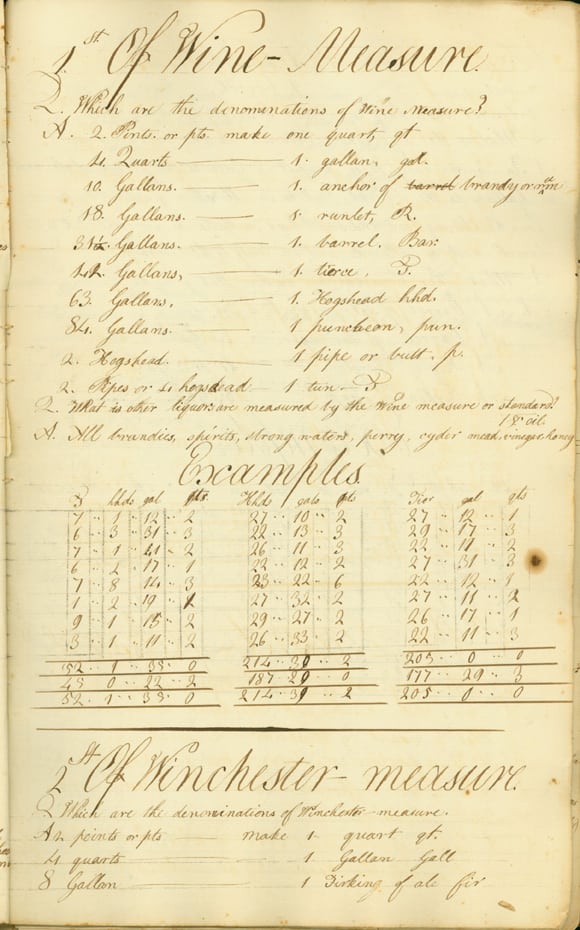 1st Of Wine-Measure.
Q. Which are the denominations of Wine Measure?
A. 2. Pints. or pts. make one quart, qt
4. Quarts — 1. gallan, gal.
10. Gallans. — 1. anchor of barrel brandy or rum
18. Gallans. — 1 runlet, R.
31½ Gallans. — 1. barrel. Bar.
42. Gallans, — 1. tierce, T.
63. Gallans, — 1. Hogshead hhd.
84. Gallans. — 1 puncheon, pun.
2. Hogshead. — 1 pipe or butt. p.
2. Pipes or 4 hogshead — 1 tun — T
Q. What is other liquors are measured by the Wine measure or standard?
A. All brandies, spirits, strong waters, perry, cyder mead, vinegar honey & oil.
Examples
T hhds gal qts Hhds gals qts Tier gal qts
7 ·· 1 ·· 12 ·· 2 27 ·· 10 ·· 2 27 ·· 12 ·· 1
6 ·· 3 ·· 31 ·· 3 22 ·· 13 ·· 3 29 ·· 17 ·· 3
7 ·· 1 ·· 41 ·· 2 26 ·· 11 ·· 3 22 ·· 11 ·· 2
6 ·· 2 ·· 17 ·· 1 22 ·· 12 ·· 2 27 ·· 31 ·· 3
7 ·· 8 ·· 14 ·· 3 23 ·· 22 ·· 6 22 ·· 12 ·· 1
1 ·· 2 ·· 19 ·· 1 27 ·· 32 ·· 2 27 ·· 11 ·· 2
9 ·· 1 ·· 18 ·· 2 29 ·· 27 ·· 2 26 ·· 17 ·· 1
3 ·· 1 ·· 11 ·· 2 26 ·· 33 ·· 2 22 ·· 11 ·· 3
52 ·· 1 ·· 33 ·· 0 214 ·· 39 ·· 2 205 ·· 0 ·· 0
45 0 ·· 22 ·· 2 187 ·· 29 ·· 0 177 ·· 29 ·· 3
52 ·· 1 ·· 33 ·· 0 214 ·· 39 ·· 2 205 ·· 0 ·· 0
2st Of Winchester measure.
Q Which are the denominations of Winchester-measure.
A 2 peints or pts — make 1 quart qt.
4 quarts — 1 Gallan Gall
8 Gallan — 1 Firking of ale fir